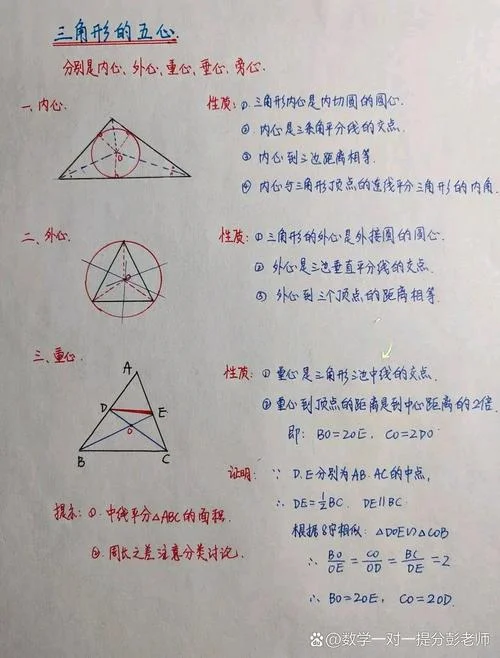 三角形的五心.
分别是内心、外心、重心、垂心、旁心.
一、内心.
性质: ①. 三角形内心是内切圆的圆心.
② 内心是三条角平分线的交点.
③ 内心到三边距离相等.
④ 内心与三角形顶点的连线平分三角形的内角.
O
二、外心.
性质: ① 三角形的外心是外接圆的圆心.
② 外心是三边垂直平分线的交点.
③ 外心到三个顶点的距离相等.
三、重心.
性质: ① 重心是三角形三边中线的交点.
② 重心到顶点的距离是到中心距离的2倍.
即: BO=2OE, CO=2DO
A
D
E
O
B
C
证明: ∵ D.E分别为AB.AC的中点,
∴ DE=1/2BC. DE∥BC
根据8字相似: △DOE∽△COB
∴ BO/OE = CO/OD = BC/DE = 2
∴ BO=2OE, CO=2OD.
提示: ①. 中线平分△ABC的面积.
②. 周长之差注意分类讨论.
数学一对一提分彭老师